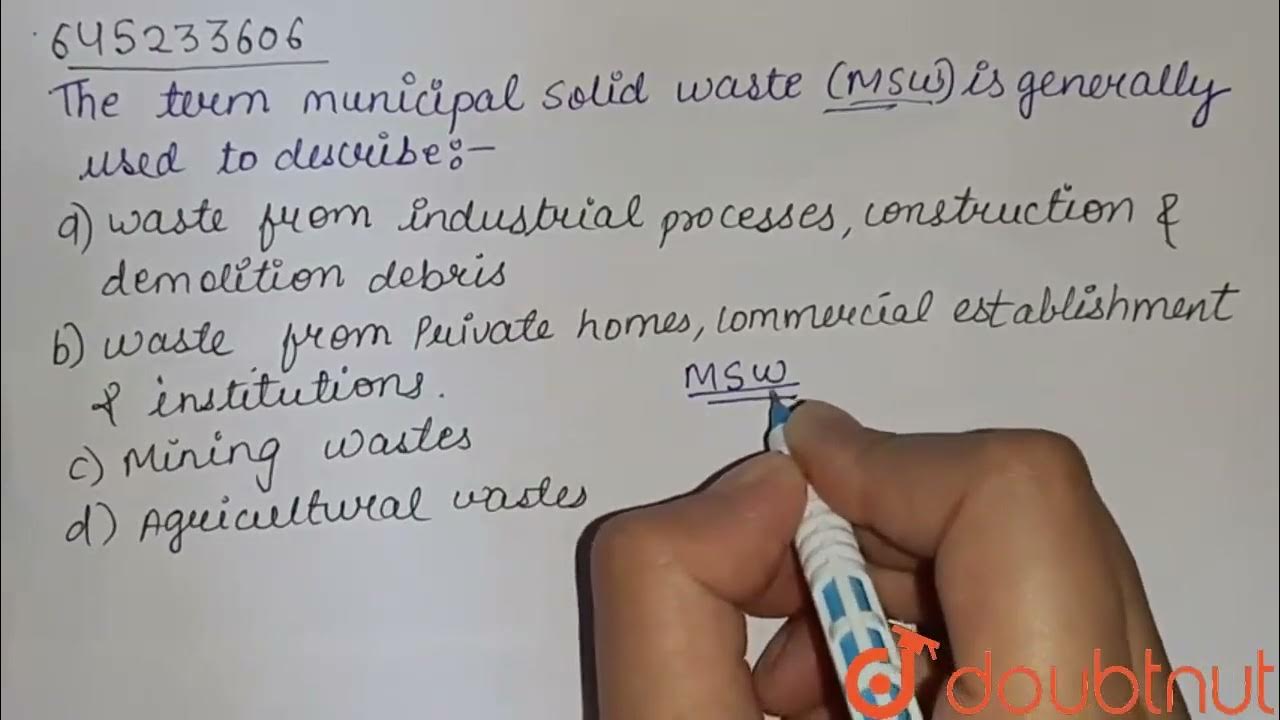 645233606
The term municipal solid waste (MSW) is generally
used to describe:-
a) waste from industrial processes, construction &
demolition debris
b) waste from Private homes, commercial establishment
& institutions.
MSW
c) Mining wastes
d) Agricultural wastes
doubtnut